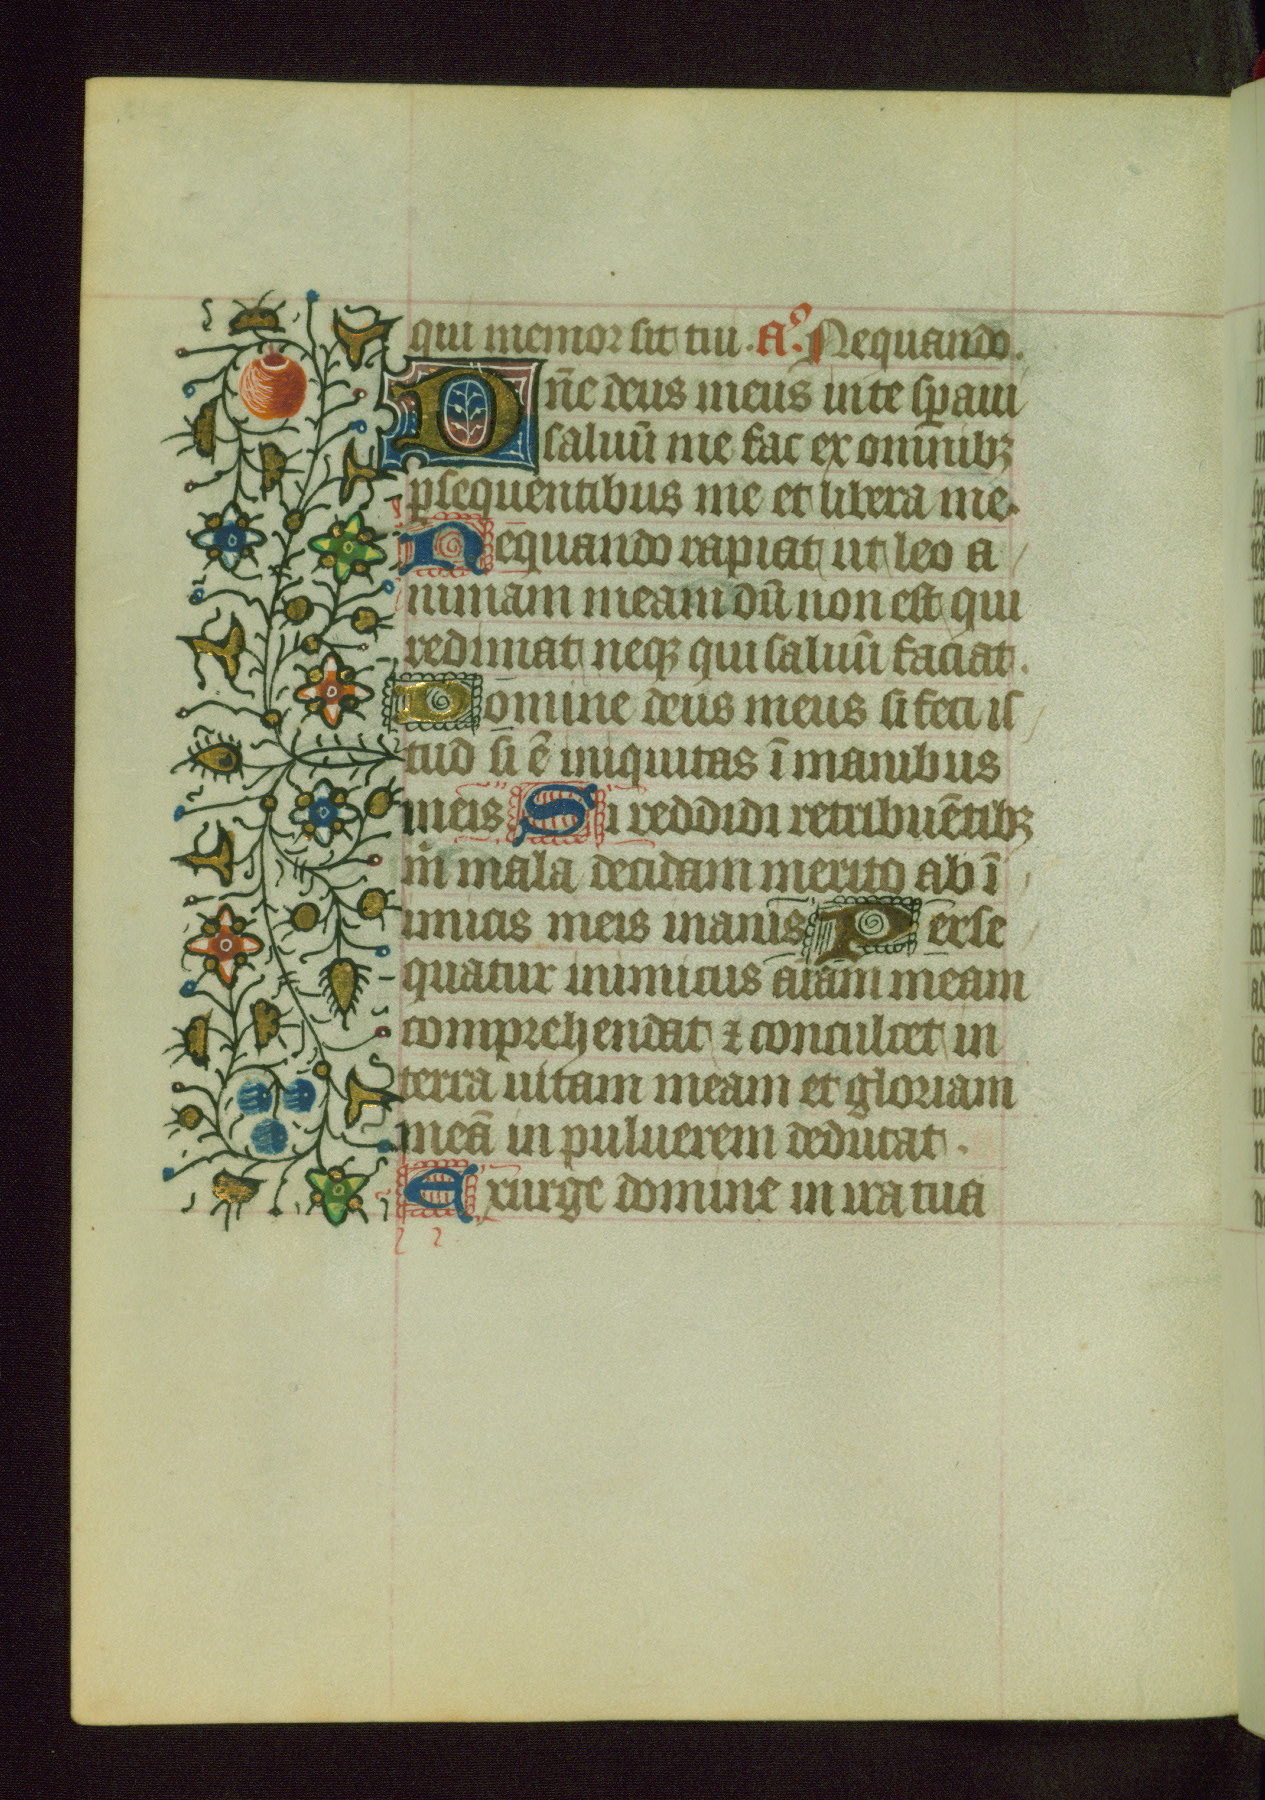 qui memor sit tui. Aº. Nequando.
Dn̄e deus meus in te sp̄aui
saluū me fac ex omnibꝫ
ꝑsequentibus me et libera me.
Nequando rapiat ut leo a
nimam meam dū non est qui
redimat neqꝫ qui saluū faciat.
Domine deus meus si feci is
tud si ē iniquitas ī manibus
meis Si reddidi retribuētibꝫ
m̄ mala decidam merito ab ī
imicis meis inanis Perse
quatur inimicus aīam meam
comprehendat ⁊ conculcet in
terra uitam meam et gloriam
meā in puluerem deducat.
Exurge domine in ira tua